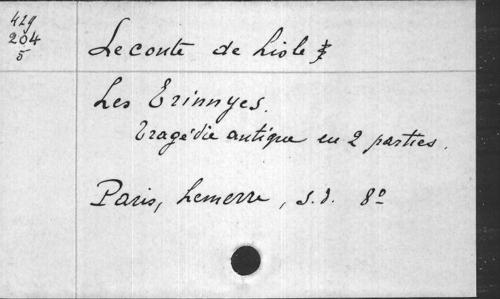 429
204
5
Leconte de Lisle
Les Erinnyes.
Tragédie antique en 2 parties.
Paris, Lemerre, s.d. 8º